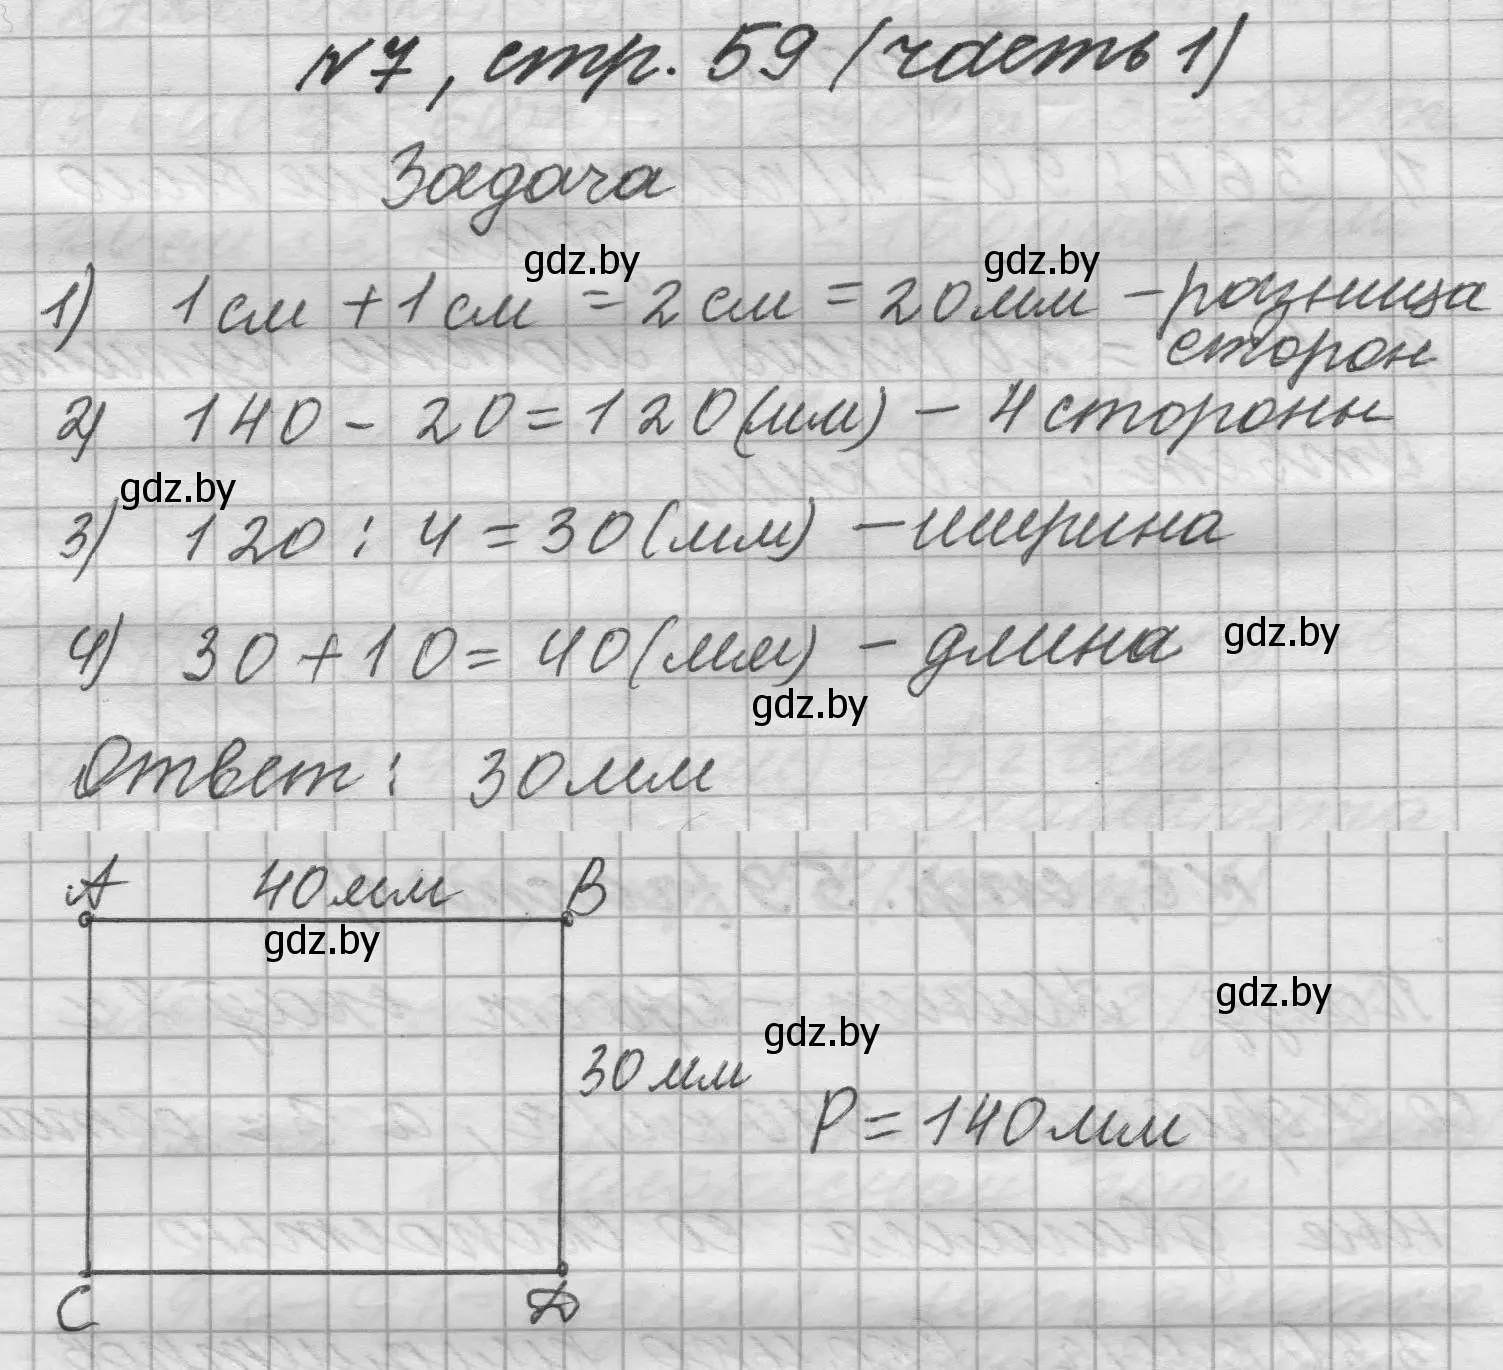 №7, стр. 59 (часть 1)
Задача
gdz.by gdz.by
1) 1 см + 1 см = 2 см = 20 мм - разница
сторон
2) 140 - 20 = 120 (мм) - 4 стороны
gdz.by
3) 120 : 4 = 30 (мм) - ширина
4) 30 + 10 = 40 (мм) - длина gdz.by
gdz.by
Ответ: 30 мм
А 40 мм В
gdz.by
gdz.by
gdz.by
30 мм
Р = 140 мм
С D